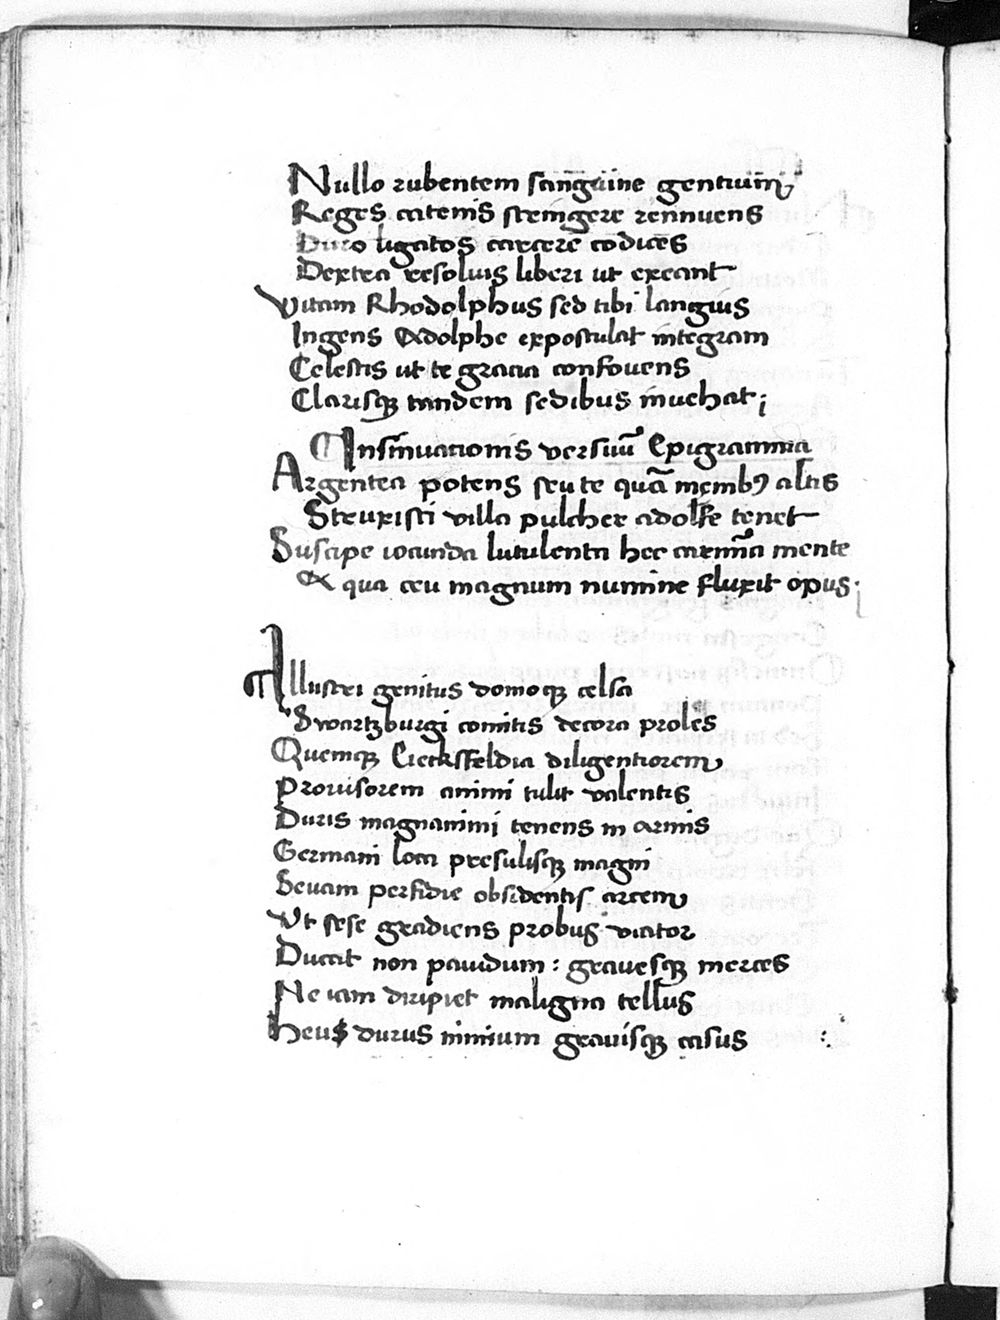 Nullo rubentem sanguine gentium
Reges catenis stringere rennuens
Duro ligatos carcere codices
Dextra resoluis liberi ut exeant
Vitam Rhodolphus sed tibi langius
Ingens Adolphe expostulat integram
Celestis ut te gracia confouens
Clarisq; tandem sedibus inuehat;
Insinuationis versuū Epigramma
Argentea potens seu te quā membꝰ altis
Steuristi villa pulcher adolfe tenet
Suscipe iocunda lutulenta hec carmīa mente
Ex qua ceu magnum numine fluxit opus;
Illustri genitus domoq; celsa
Swartzburgi comitis decora proles
Quemq; Eicksfeldia diligentiorem
Prouisorem animi tulit valentis
Duris magnanimi tenens in armis
Germani loca presulisq; magni
Seuam perfidie obsidentis arcem
Vt sese gradiens probus viator
Ducat non pauidum: grauesq; merces
Ne iam diripiet maligna tellus
Heus durus nimium grauisq; casus